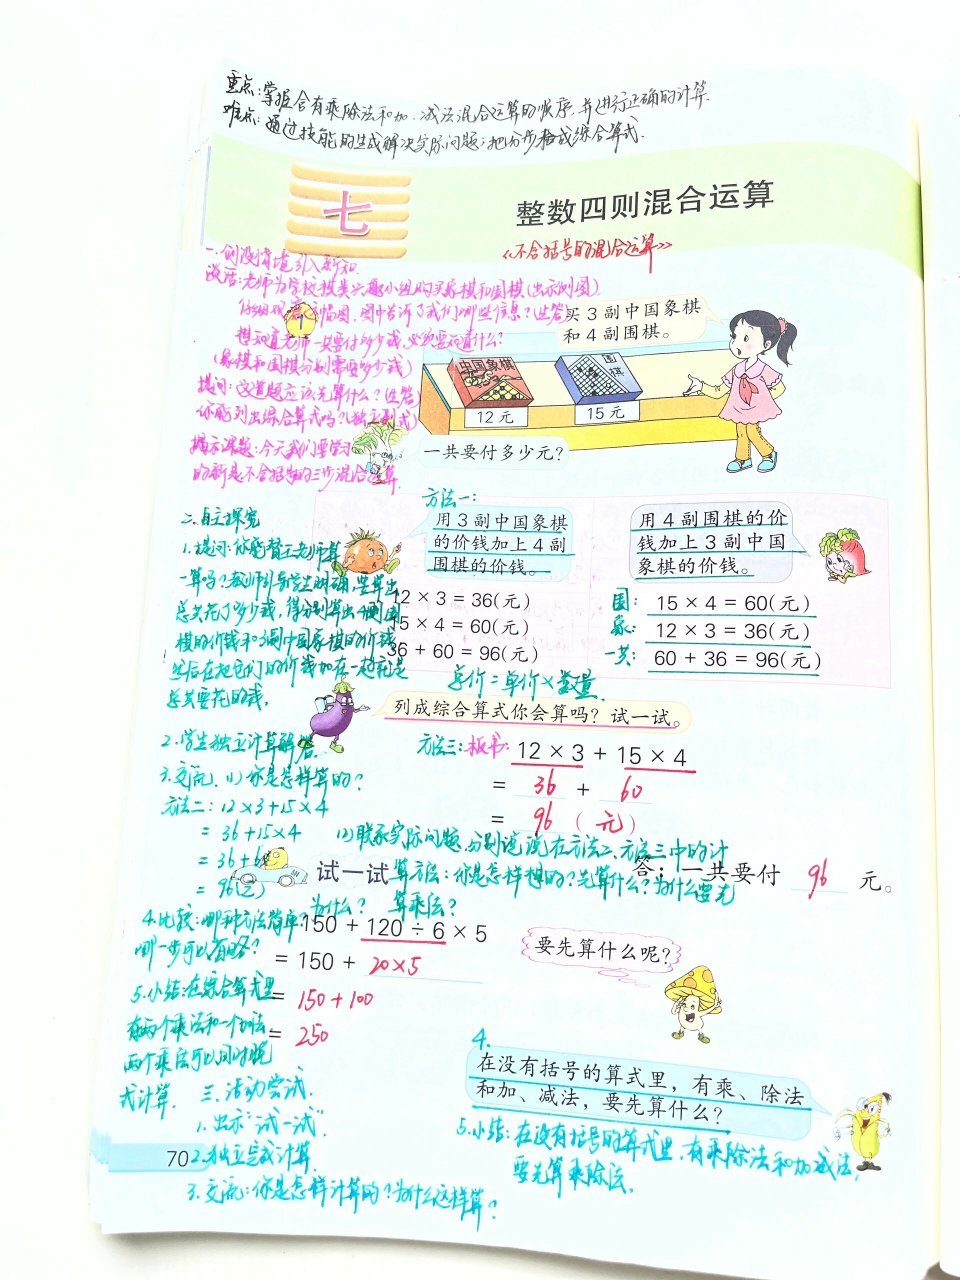 重点:掌握含有乘除法和加、减法混合运算的顺序,并进行正确的计算.
难点:通过技能的生成解决实际问题;把分步格成综合算式.
七
整数四则混合运算
《不含括号的混合运算》
一.创设情境引入新知.
谈话:老师为学校棋类兴趣小组购买象棋和围棋(出示例图)
仔细观 幅图,图中告诉了我们哪些信息?(生答)
想知道老师一共要付多少钱,必须要知道什么?
(象棋和围棋分别需要多少钱)
提问:这道题应该先算什么?(生答)
你能列出综合算式吗?(独立列式)
揭示课题:今天我们要学习
的新是不含括号的三步混合运算.
1
买3副中国象棋
和4副围棋。
中国象棋
围棋
12元
15元
一共要付多少元?
二.自主探究
1.提问:你能替王老师算
一算吗?教师引导学生明确,要算出
总共花了多少钱,得分别算出4副围
棋的价钱和3副中国象棋的价钱,
然后在把它们的价钱加在一起就是
总共要花的钱.
方法一:
用3副中国象棋
的价钱加上4副
围棋的价钱。
12 × 3 = 36(元)
15 × 4 = 60(元)
36 + 60 = 96(元)
用4副围棋的价
钱加上3副中国
象棋的价钱。
围: 15 × 4 = 60(元)
象: 12 × 3 = 36(元)
一共: 60 + 36 = 96(元)
总价=单价×数量.
列成综合算式你会算吗?试一试。
2.学生独立计算解答.
3.交流.(1)你是怎样算的?
方法二:12×3+15×4
= 36+15×4
= 36+60
= 96(元)
方法三:板书:
12 × 3 + 15 × 4
= 36 + 60
= 96 (元)
(2)联系实际问题,分别说说在方法二、方法三中的计
算方法:你是怎样想的?先算什么?为什么要先
算乘法?
为什么?
答:一共要付 96 元。
试一试
4.比较:哪种方法简单?
哪一步可以省略?
5.小结:在综合算式里
有两个乘法和一个加法
两个乘法可以同时脱
式计算.
150 + 120 ÷ 6 × 5
= 150 + 20×5
= 150+100
= 250
要先算什么呢?
4.
在没有括号的算式里,有乘、除法
和加、减法,要先算什么?
5.小结:在没有括号的算式里,有乘除法和加减法,
要先算乘除法.
三.活动尝试.
1.出示"试一试".
2.独立完成计算.
3.交流:你是怎样计算的?为什么这样算?
70